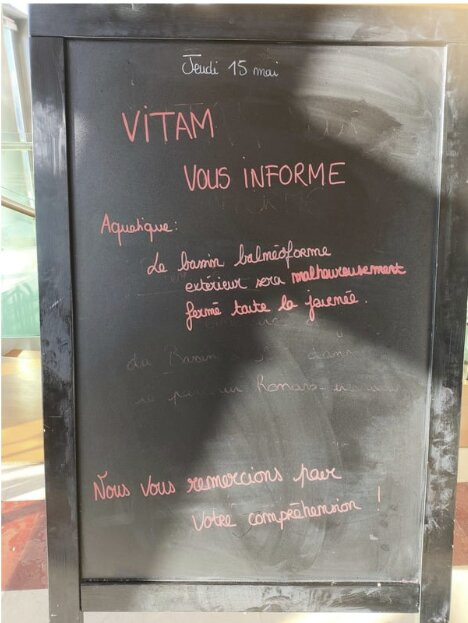 Jeudi 15 mai
VITAM
VOUS INFORME
Aquatique:
Le bassin balnéoforme
extérieur sera malheureusement
fermé toute la journée.
Nous vous remercions pour
votre compréhension !